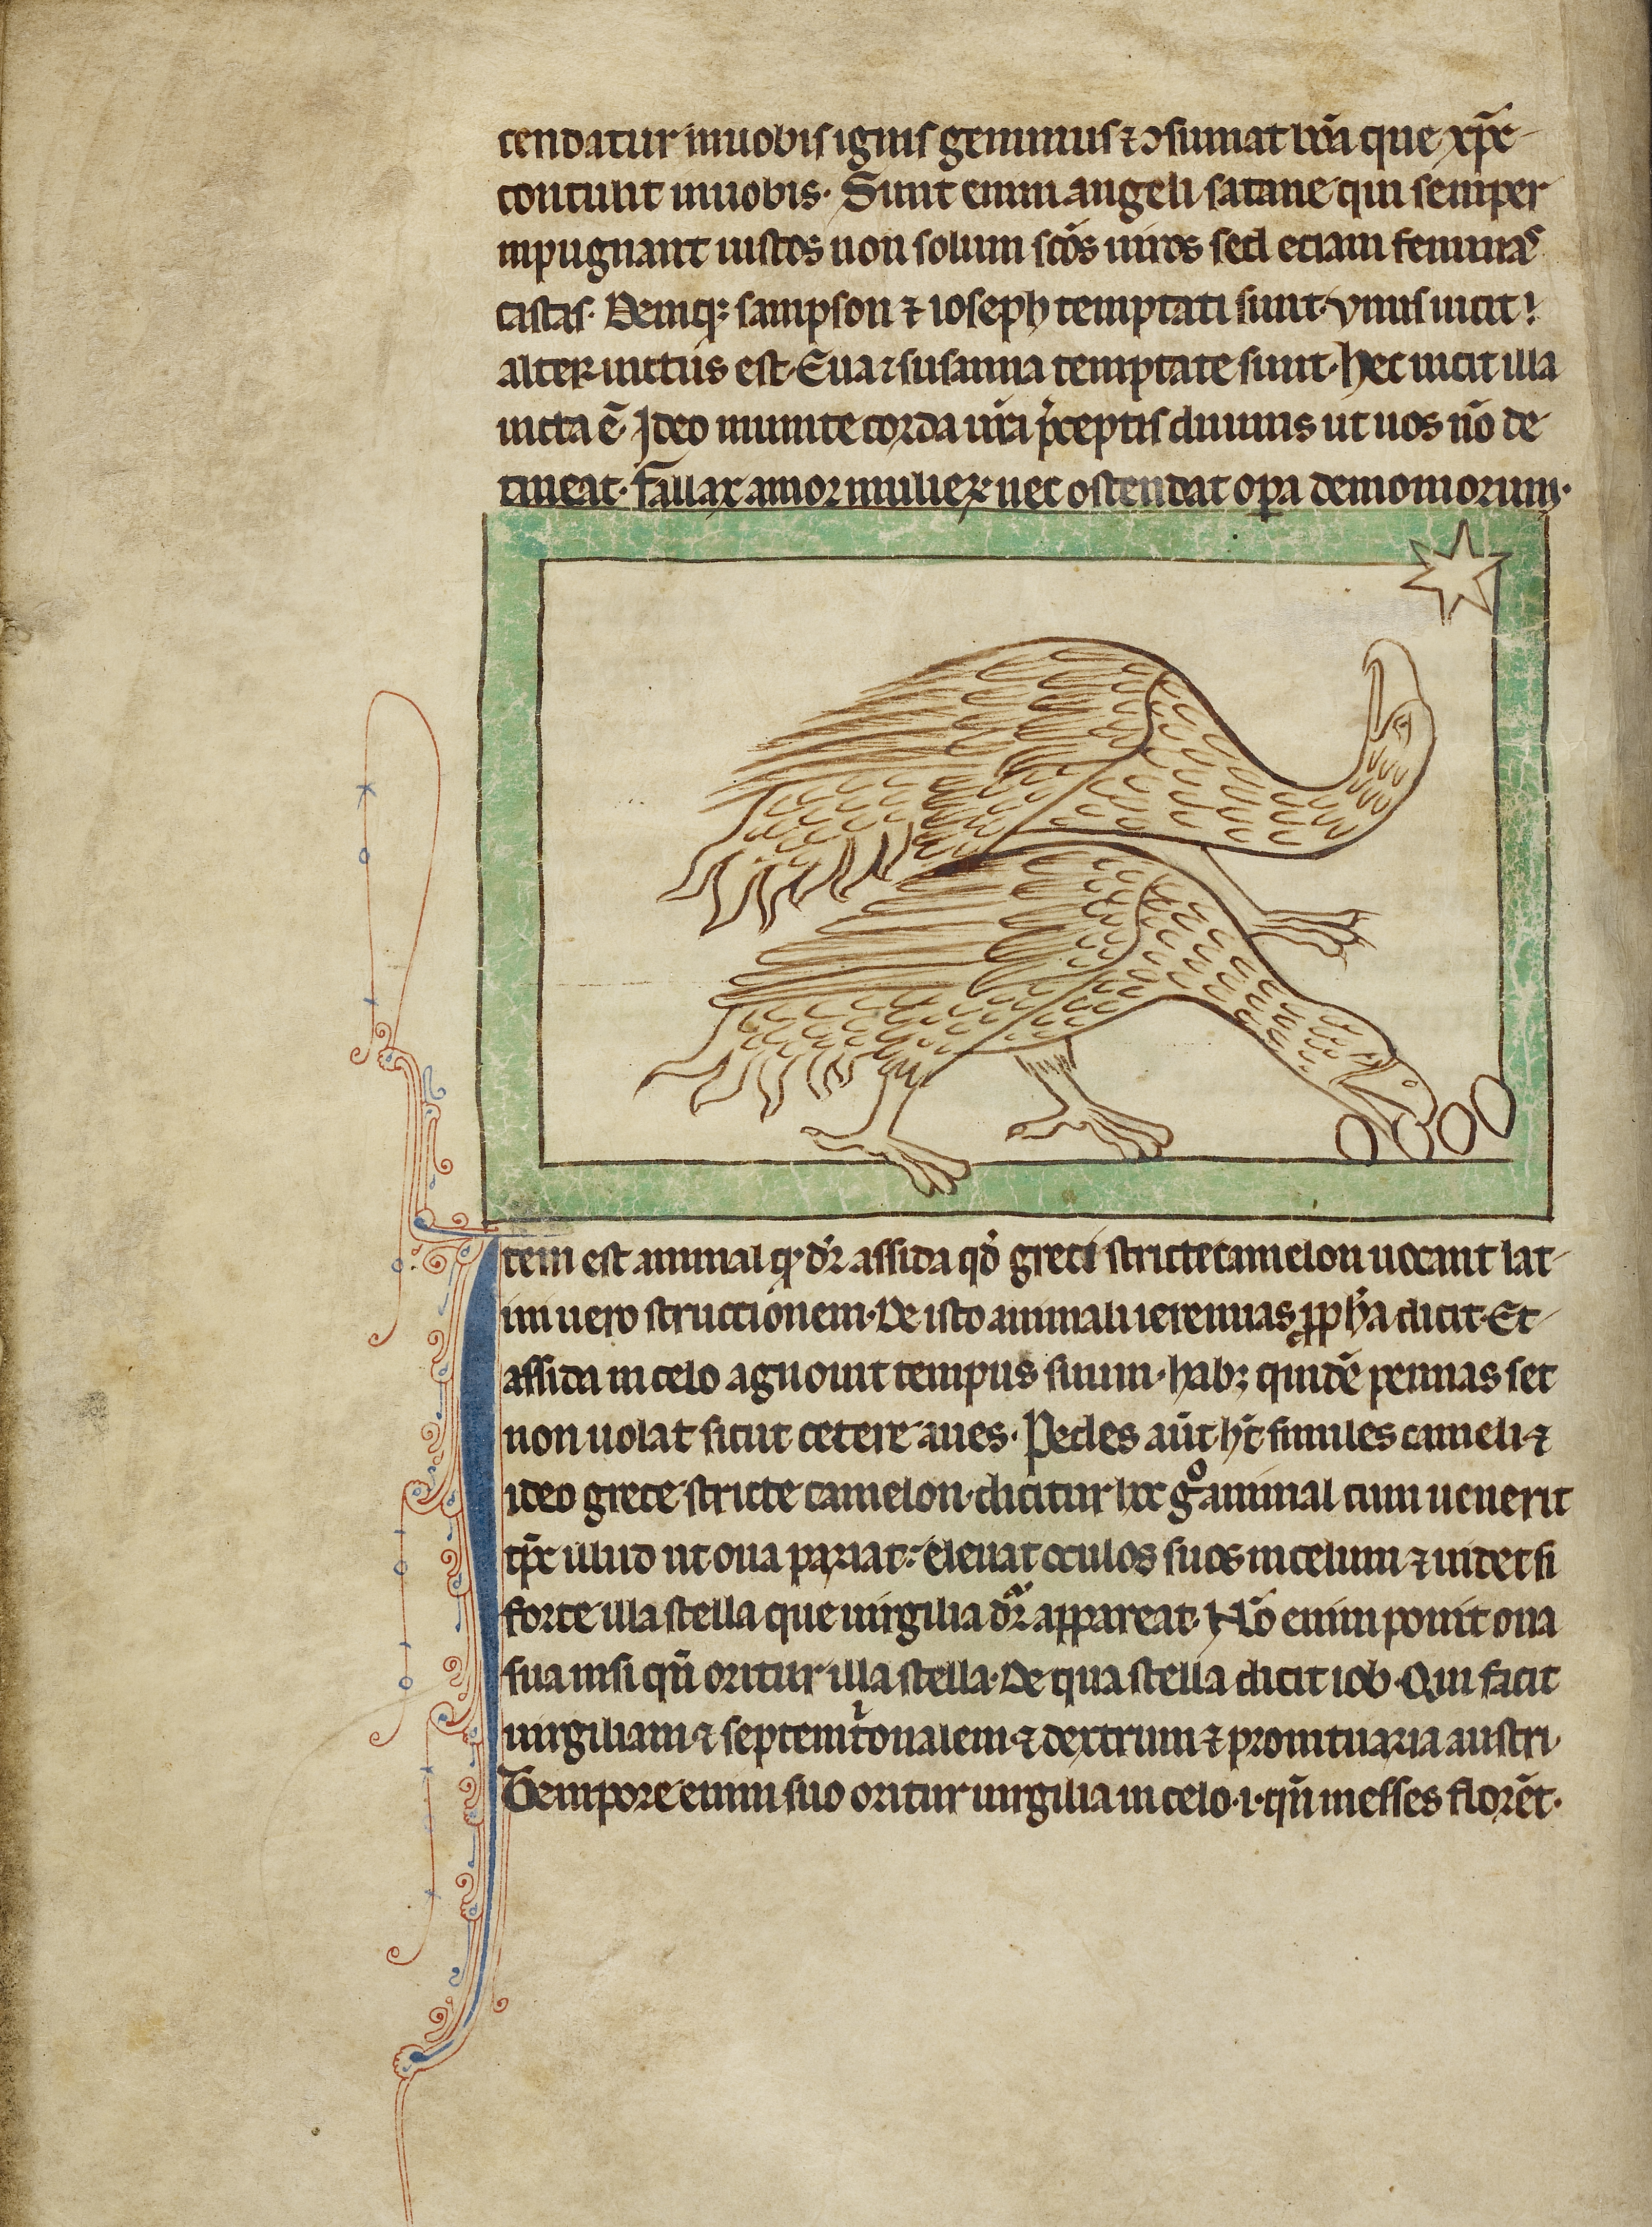 cendatur in uobis ignis geminus ⁊ ↄsumat bōa que xp̄c
contulit in uobis. Sunt enim angeli satane qui semper
inpugnant iustos non solum sc̄os uiros sed etiam feminas
castas. Deniqꝫ sampson ⁊ ioseph temptati sunt. vnus uicit
alter uictus est. Eua ⁊ susanna temptate sunt. hec uicit illa
uicta ē. Ideo munite corda ur̄a p̄ceptis diuinis ut uos nō de
tineat. fallax amor mulieꝝ nec ostendat oꝑa demoniorum.
Item est animal qd̄ dr̄ assida qd̄ greci strictecamelon uocant lat
ini uero structionem. De isto animali ieremias ꝓph̄a dicit. Et
assida in celo agnouit tempus suum. habꝫ quidē pennas set
non uolat sicut cetere aues. Pedes aūt hʳt similes cameli ⁊
ideo grece stricte camelon dicitur hoc gͦ animal cum uenerit
tp̄c illud ut oua pariat. eleuat oculos suos in celum ⁊ uidet si
forte illa stella que uirgilia dr̄ appareat. Nō enim ponit oua
sua nisi qn̄ oritur illa stella. De qua stella dicit iob. Qui facit
uirgiliam ⁊ septemtⁱonalem ⁊ dextrum ⁊ promtuaria austri.
Tempore enim suo oritur uirgilia in celo .i. qn̄ messes florēt.